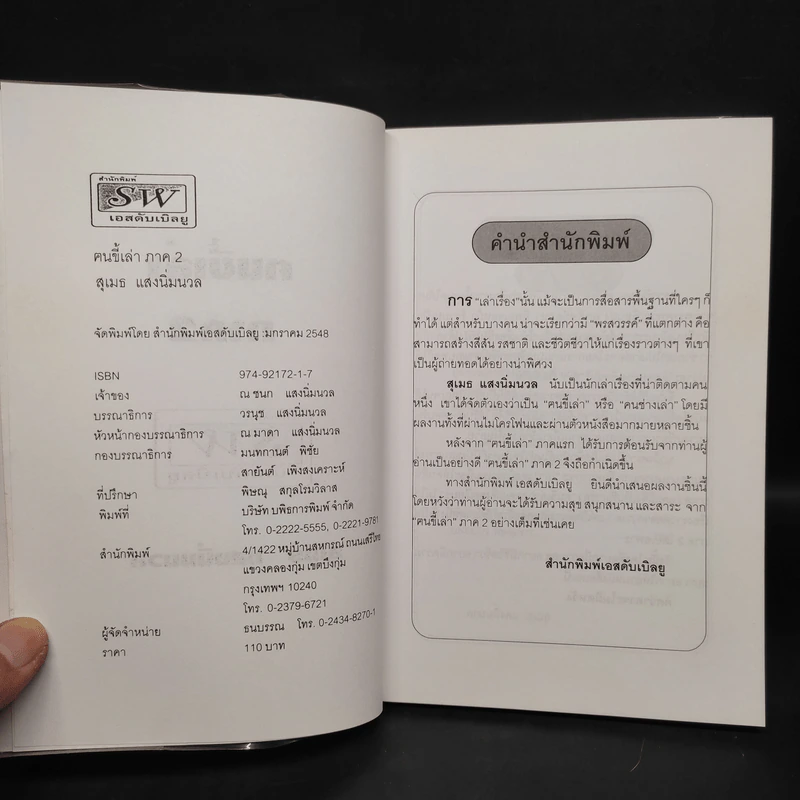 สำนักพิมพ์
SW
เอสดับเบิลยู
ฅนขี้เล่า ภาค 2
สุเมธ แสงนิ่มนวล
จัดพิมพ์โดย สำนักพิมพ์เอสดับเบิลยู :มกราคม 2548
ISBN 974-92172-1-7
เจ้าของ ณ ชนก แสงนิ่มนวล
บรรณาธิการ วรนุช แสงนิ่มนวล
หัวหน้ากองบรรณาธิการ ณ มาดา แสงนิ่มนวล
กองบรรณาธิการ มนทกานต์ พิชัย
สายันต์ เพิงสงเคราะห์
ที่ปรึกษา พิษณุ สกุลโรมวิลาส
พิมพ์ที่ บริษัท บพิธการพิมพ์ จำกัด
โทร. 0-2222-5555, 0-2221-9781
สำนักพิมพ์ 4/1422 หมู่บ้านสหกรณ์ ถนนเสรีไทย
แขวงคลองกุ่ม เขตบึงกุ่ม
กรุงเทพฯ 10240
โทร. 0-2379-6721
ผู้จัดจำหน่าย ธนบรรณ โทร. 0-2434-8270-1
ราคา 110 บาท
คำนำสำนักพิมพ์
การ "เล่าเรื่อง"นั้น แม้จะเป็นการสื่อสารพื้นฐานที่ใครๆ ก็
ทำได้ แต่สำหรับบางคน น่าจะเรียกว่ามี "พรสวรรค์" ที่แตกต่าง คือ
สามารถสร้างสีสัน รสชาติ และชีวิตชีวาให้แก่เรื่องราวต่างๆ ที่เขา
เป็นผู้ถ่ายทอดได้อย่างน่าพิศวง
สุเมธ แสงนิ่มนวล นับเป็นนักเล่าเรื่องที่น่าติดตามคน
หนึ่ง เขาได้จัดตัวเองว่าเป็น "ฅนขี้เล่า" หรือ "คนช่างเล่า" โดยมี
ผลงานทั้งที่ผ่านไมโครโฟนและผ่านตัวหนังสือมากมายหลายชิ้น
หลังจาก "ฅนขี้เล่า" ภาคแรก ได้รับการต้อนรับจากท่านผู้
อ่านเป็นอย่างดี "ฅนขี้เล่า" ภาค 2 จึงถือกำเนิดขึ้น
ทางสำนักพิมพ์ เอสดับเบิลยู ยินดีนำเสนอผลงานชิ้นนี้
โดยหวังว่าท่านผู้อ่านจะได้รับความสุข สนุกสนาน และสาระ จาก
"ฅนขี้เล่า" ภาค 2 อย่างเต็มที่เช่นเคย
สำนักพิมพ์เอสดับเบิลยู